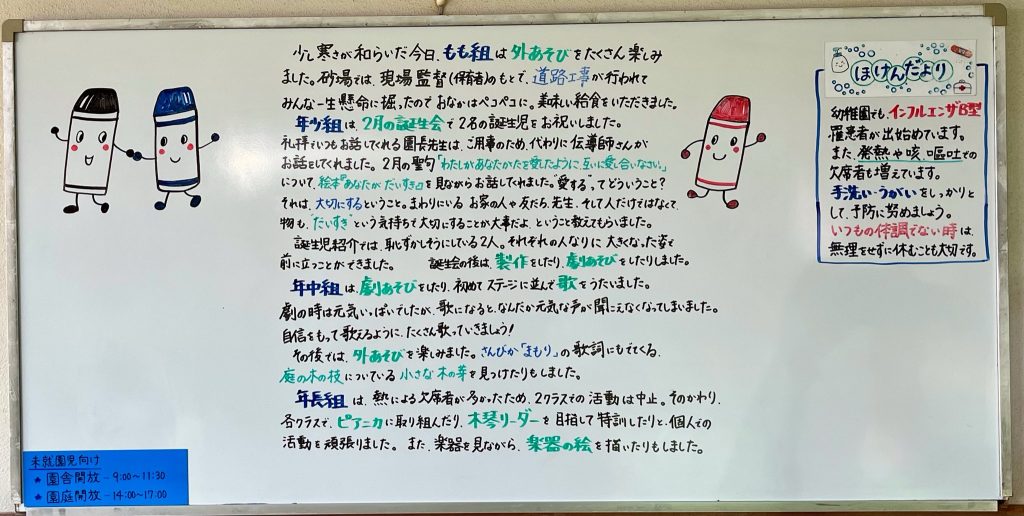 少し寒さが和らいだ今日、もも組は外あそびをたくさん楽しみ
ました。砂場では、現場監督(保育者)のもとで、道路工事が行われて
みんな一生懸命に掘ったのでおなかはペコペコに。美味しい給食をいただきました。
年少組は、2月の誕生会で2名の誕生児をお祝いしました。
礼拝でいつもお話してくれる園長先生は、ご用事のため、代わりに伝導師さんが
お話をしてくれました。2月の聖句「わたしがあなたがたを愛したように、互いに愛し合いなさい。」
について、絵本『あなたがだいすき』を見ながらお話してくれました。"愛する"ってどういうこと?
それは、大切にするということ。まわりにいるお家の人や友だち、先生、そして人だけではなくて、
物も、"だいすき"という気持ちで大切にすることが大事だよ、ということ教えてもらいました。
誕生児紹介では、恥ずかしそうにしている2人。それぞれの人なりに大きくなった姿で
前に立つことができました。 誕生会の後は、製作をしたり、劇あそびをしたりしました。
年中組は、劇あそびをしたり、初めてステージに並んで歌をうたいました。
劇の時は元気いっぱいでしたが、歌になると、なんだか元気な声が聞こえなくなってしまいました。
自信をもって歌えるように、たくさん歌っていきましょう!
その後では、外あそびを楽しみました。さんびか「まもり」の歌詞にもでてくる、
庭の木の枝についている小さな木の芽を見つけたりもしました。
年長組は、熱による欠席者が多かったため、2クラスでの活動は中止。そのかわり、
各クラスで、ピアニカに取り組んだり、木琴リーダーを目指して特訓したりと、個人での
活動を頑張りました。また、楽器を見ながら、楽器の絵を描いたりもしました。
ほけんだより
幼稚園でも、インフルエンザB型
罹患者が出始めています。
また、発熱や咳、嘔吐での
欠席者も増えています。
手洗い・うがいをしっかりと
して、予防に努めましょう。
いつもの体調でない時は、
無理をせずに休むことも大切です。
未就園児向け
★ 園舎開放 - 9:00~11:30
★ 園庭開放 - 14:00~17:00